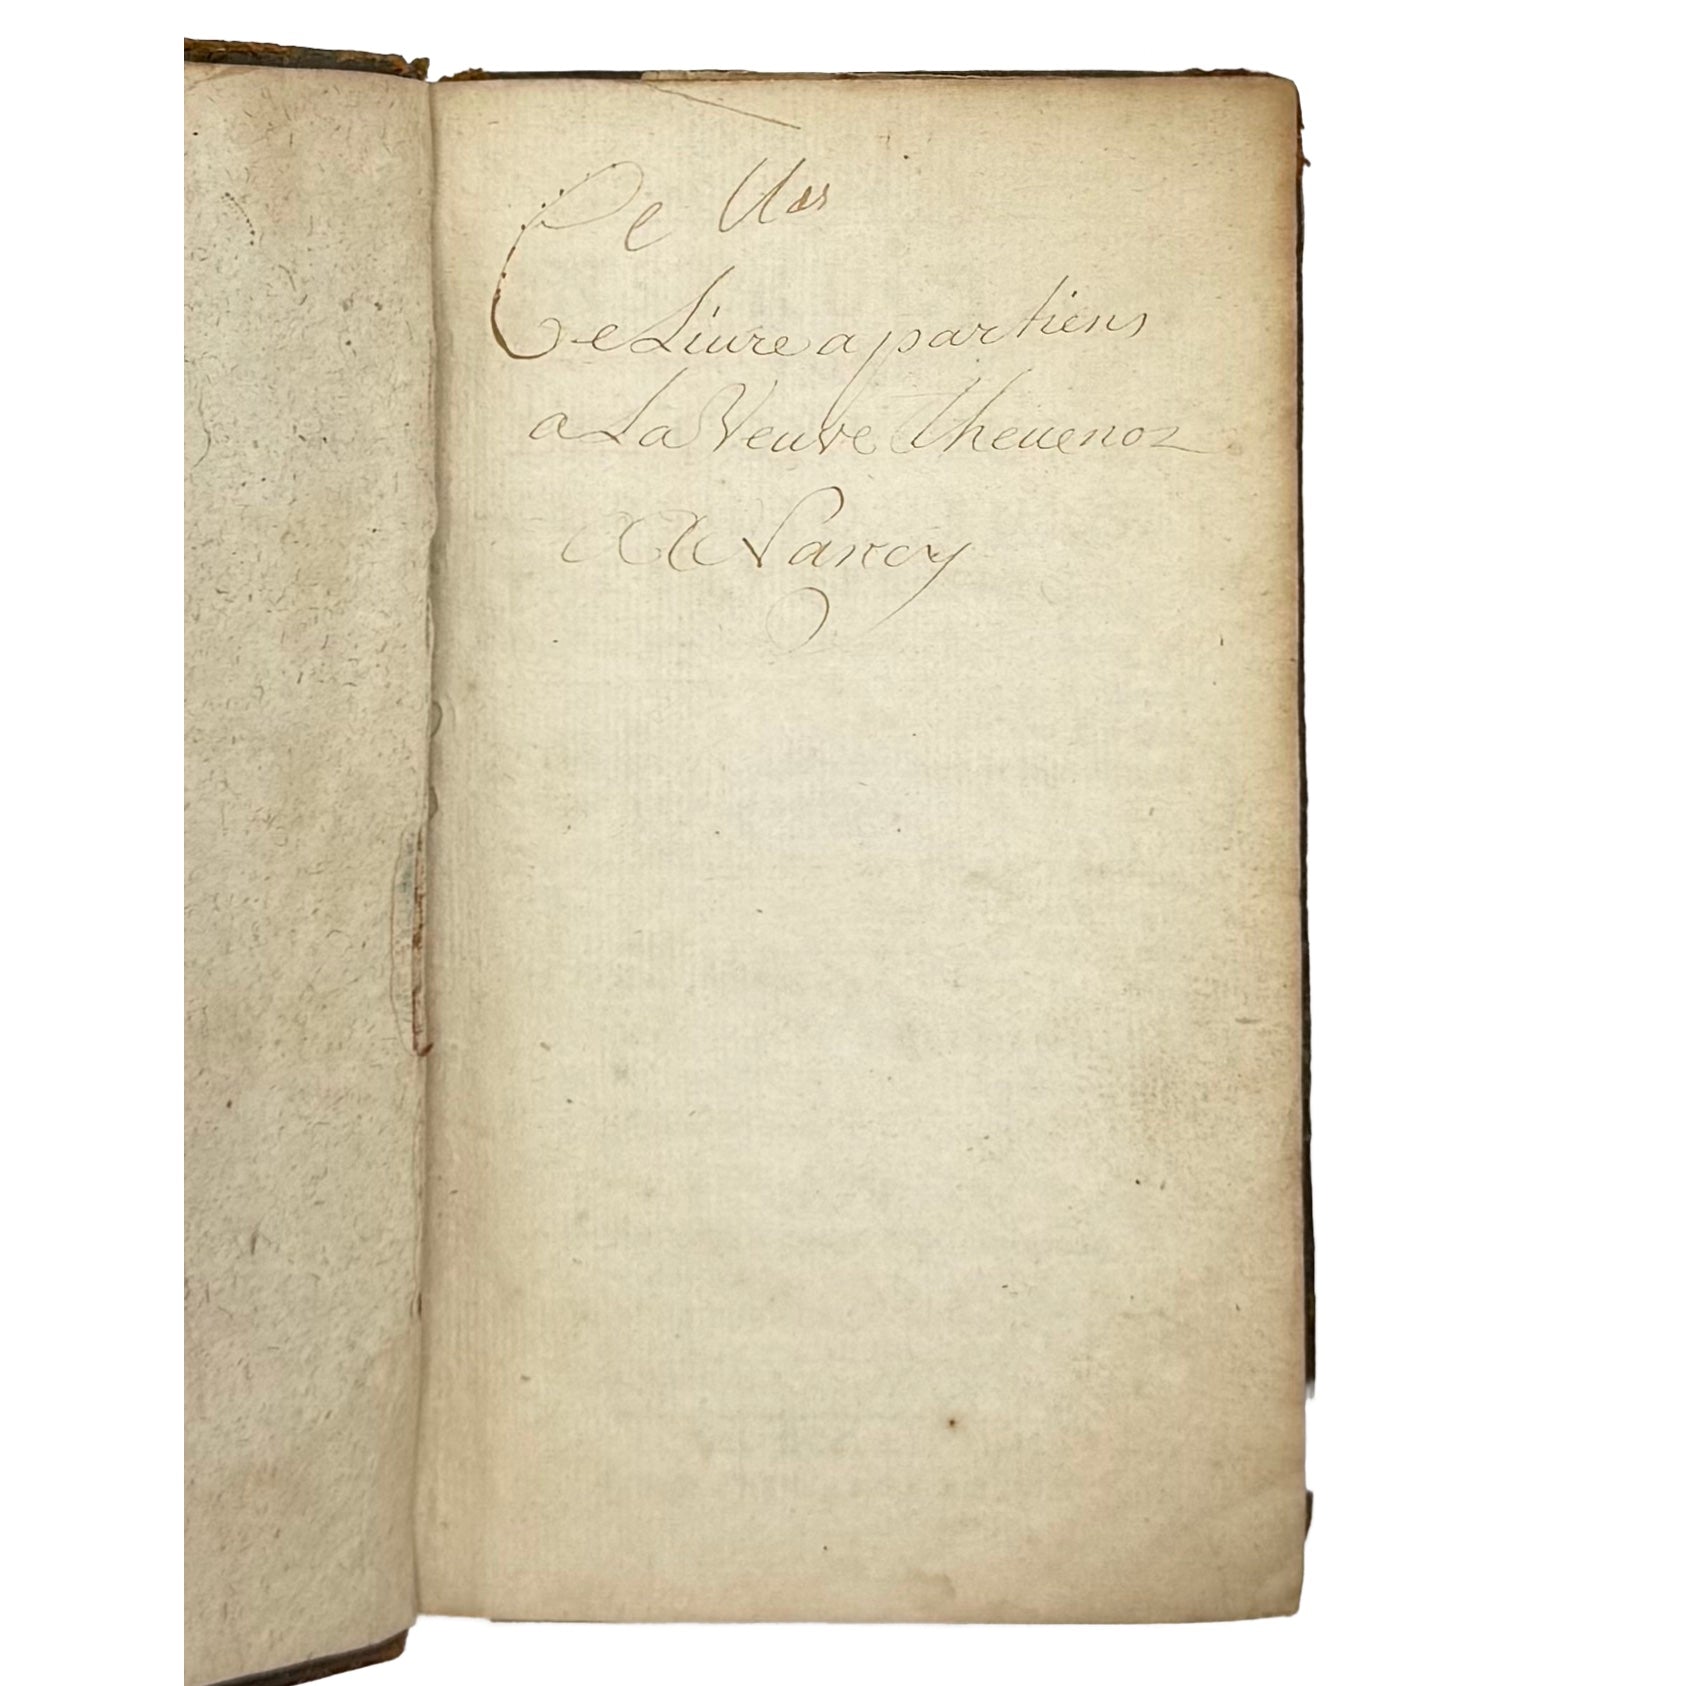 Ce
Ce Liure apartiens
a La Veuve Theuenoz
A A Nancy